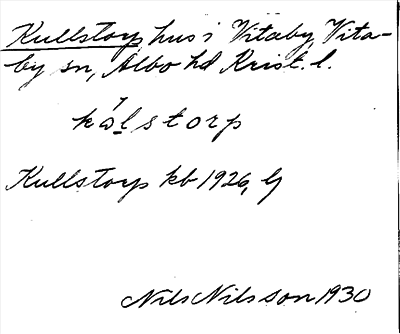 Kullstorp, hus i Vitaby, Vita-
by sn, Albo hd Krist. l.
kålstorp
Kullstorp kb 1926, lj
Nils Nilsson 1930